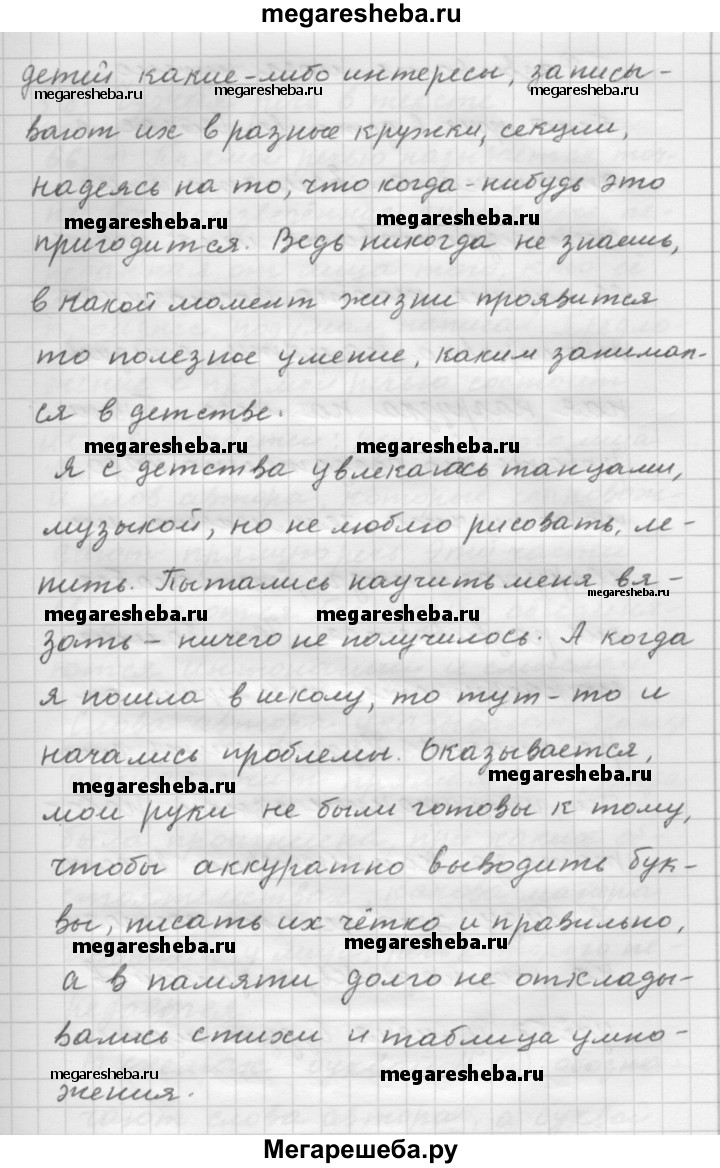 megaresheba.ru
детей какие-либо интересы, записы-
megaresheba.ru megaresheba.ru megaresheba.ru
вают их в разные кружки, секции,
надеясь на то, что когда-нибудь это
megaresheba.ru megaresheba.ru
пригодится. Ведь никогда не знаешь,
в какой момент жизни проявится
то полезное умение, каким занимал-
ся в детстве.
megaresheba.ru megaresheba.ru
Я с детства увлекаюсь танцами,
музыкой, но не люблю рисовать, ле-
пить. Пытались научить меня вя-
megaresheba.ru
megaresheba.ru megaresheba.ru
зать - ничего не получилось. А когда
я пошла в школу, то тут-то и
начались проблемы. Оказывается,
megaresheba.ru megaresheba.ru
мои руки не были готовы к тому,
чтобы аккуратно выводить бук-
вы, писать их чётко и правильно,
megaresheba.ru megaresheba.ru
а в памяти долго не отклады-
вались стихи и таблица умно-
megaresheba.ru megaresheba.ru
жения.
Мегарешеба.ру